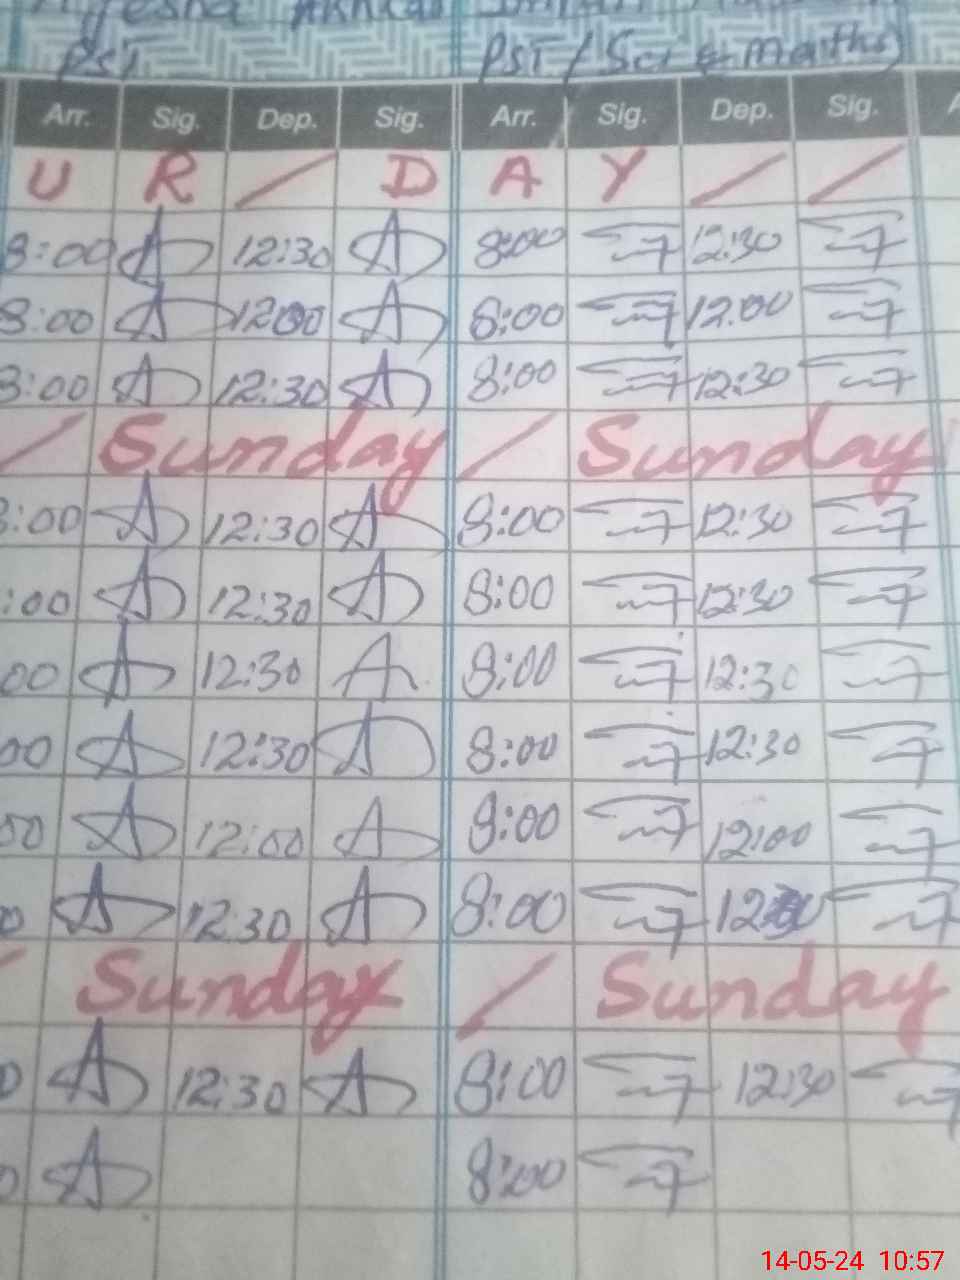 Ayesha Akhtar
PST PST / Sci & Maths)
Arr. Sig. Dep. Sig. Arr. Sig. Dep. Sig. A
U R / D A Y / /
8:00 12:30 8:00 12:30
8:00 1200 8:00 12:00
8:00 12:30 8:00 12:30
/ Sunday / Sunday
8:00 12:30 8:00 12:30
:00 12:30 8:00 12:30
00 12:30 8:00 12:30
00 12:30 8:00 12:30
00 12:00 8:00 12:00
0 12:30 8:00
Sunday / Sunday
0 12:30 8:00 12:30
0 8:00
14-05-24 10:57